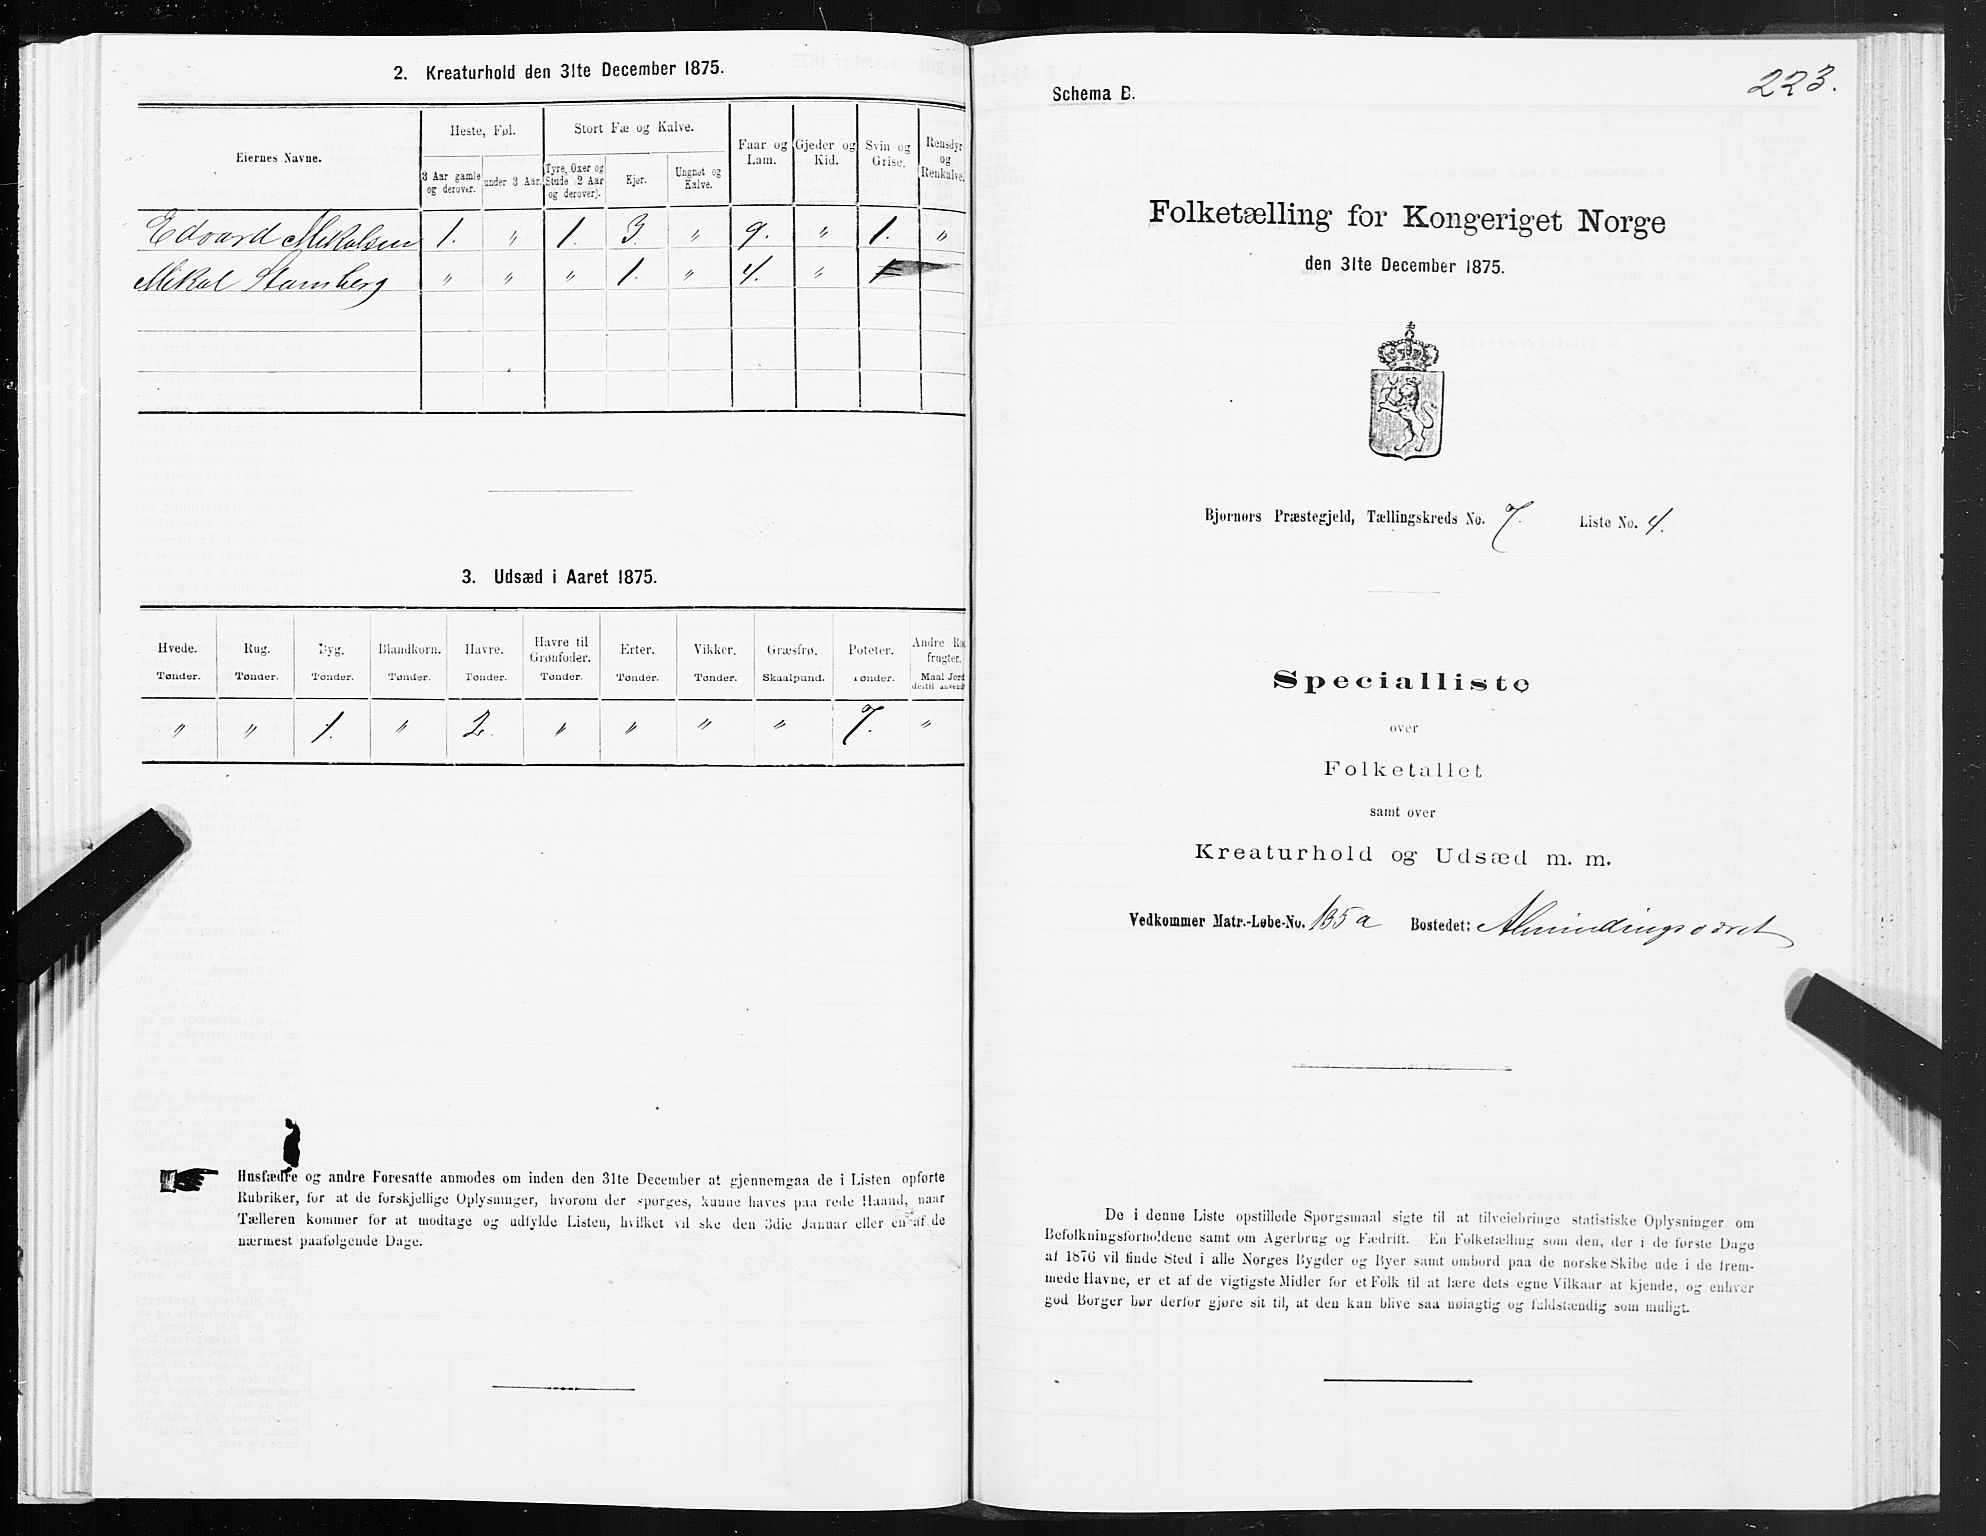 2. Kreaturhold den 31te December 1875.
Eiernes Navne.
Heste, Føl.
Stort Fæ og Kalve.
Faar og Lam.
Gjeder og Kid.
Svin og Grise.
Rensdyr og Renkalve.
3 Aar gamle og derover.
under 3 Aar.
Tyre, Oxer og Stude (2 Aar og derover).
Kjør.
Ungnøt og Kalve.
Edvard Mikalsen 1. " 1. 3. " 9. " 1. "
Mikal Stamberg " " " 1. " 4. "
3. Udsæd i Aaret 1875.
Hvede. Rug. Byg. Blandkorn. Havre. Havre til Grønfoder. Erter. Vikker. Græsfrø. Poteter. Andre Rod frugter.
Tønder. Tønder. Tønder. Tønder. Tønder. Tønder. Tønder. Tønder. Skaalpund. Tønder. Maal Jord dertil anvendt
" " 1. " 2. " " " " 7. "
Husfædre og andre Foresatte anmodes om inden den 31te December at gjennemgaa de i Listen opførte
Rubriker, for at de forskjellige Oplysninger, hvorom der spørges, kunne haves paa rede Haand, naar
Tælleren kommer for at modtage og udfylde Listen, hvilket vil ske den 3die Januar eller en af de
nærmest paafølgende Dage.
223.
Schema B.
Folketælling for Kongeriget Norge
den 31te December 1875.
Bjørnørs Præstegjeld, Tællingskreds No. 7. Liste No. 4.
Specialliste
over
Folketallet
samt over
Kreaturhold og Udsæd m. m.
Vedkommer Matr.-Løbe-No. 135a Bostedet: Almindingsværet
De i denne Liste opstillede Spørgsmaal sigte til at tilveiebringe statistiske Oplysninger om
Befolkningsforholdene samt om Agerbrug og Fædrift. En Folketælling som den, der i de første Dage
af 1876 vil finde Sted i alle Norges Bygder og Byer samt ombord paa de norske Skibe ude i de frem-
mede Havne, er et af de vigtigste Midler for et Folk til at lære dets egne Vilkaar at kjende, og enhver
god Borger bør derfor gjøre sit til, at den kan blive saa nøiagtig og fuldstændig som muligt.